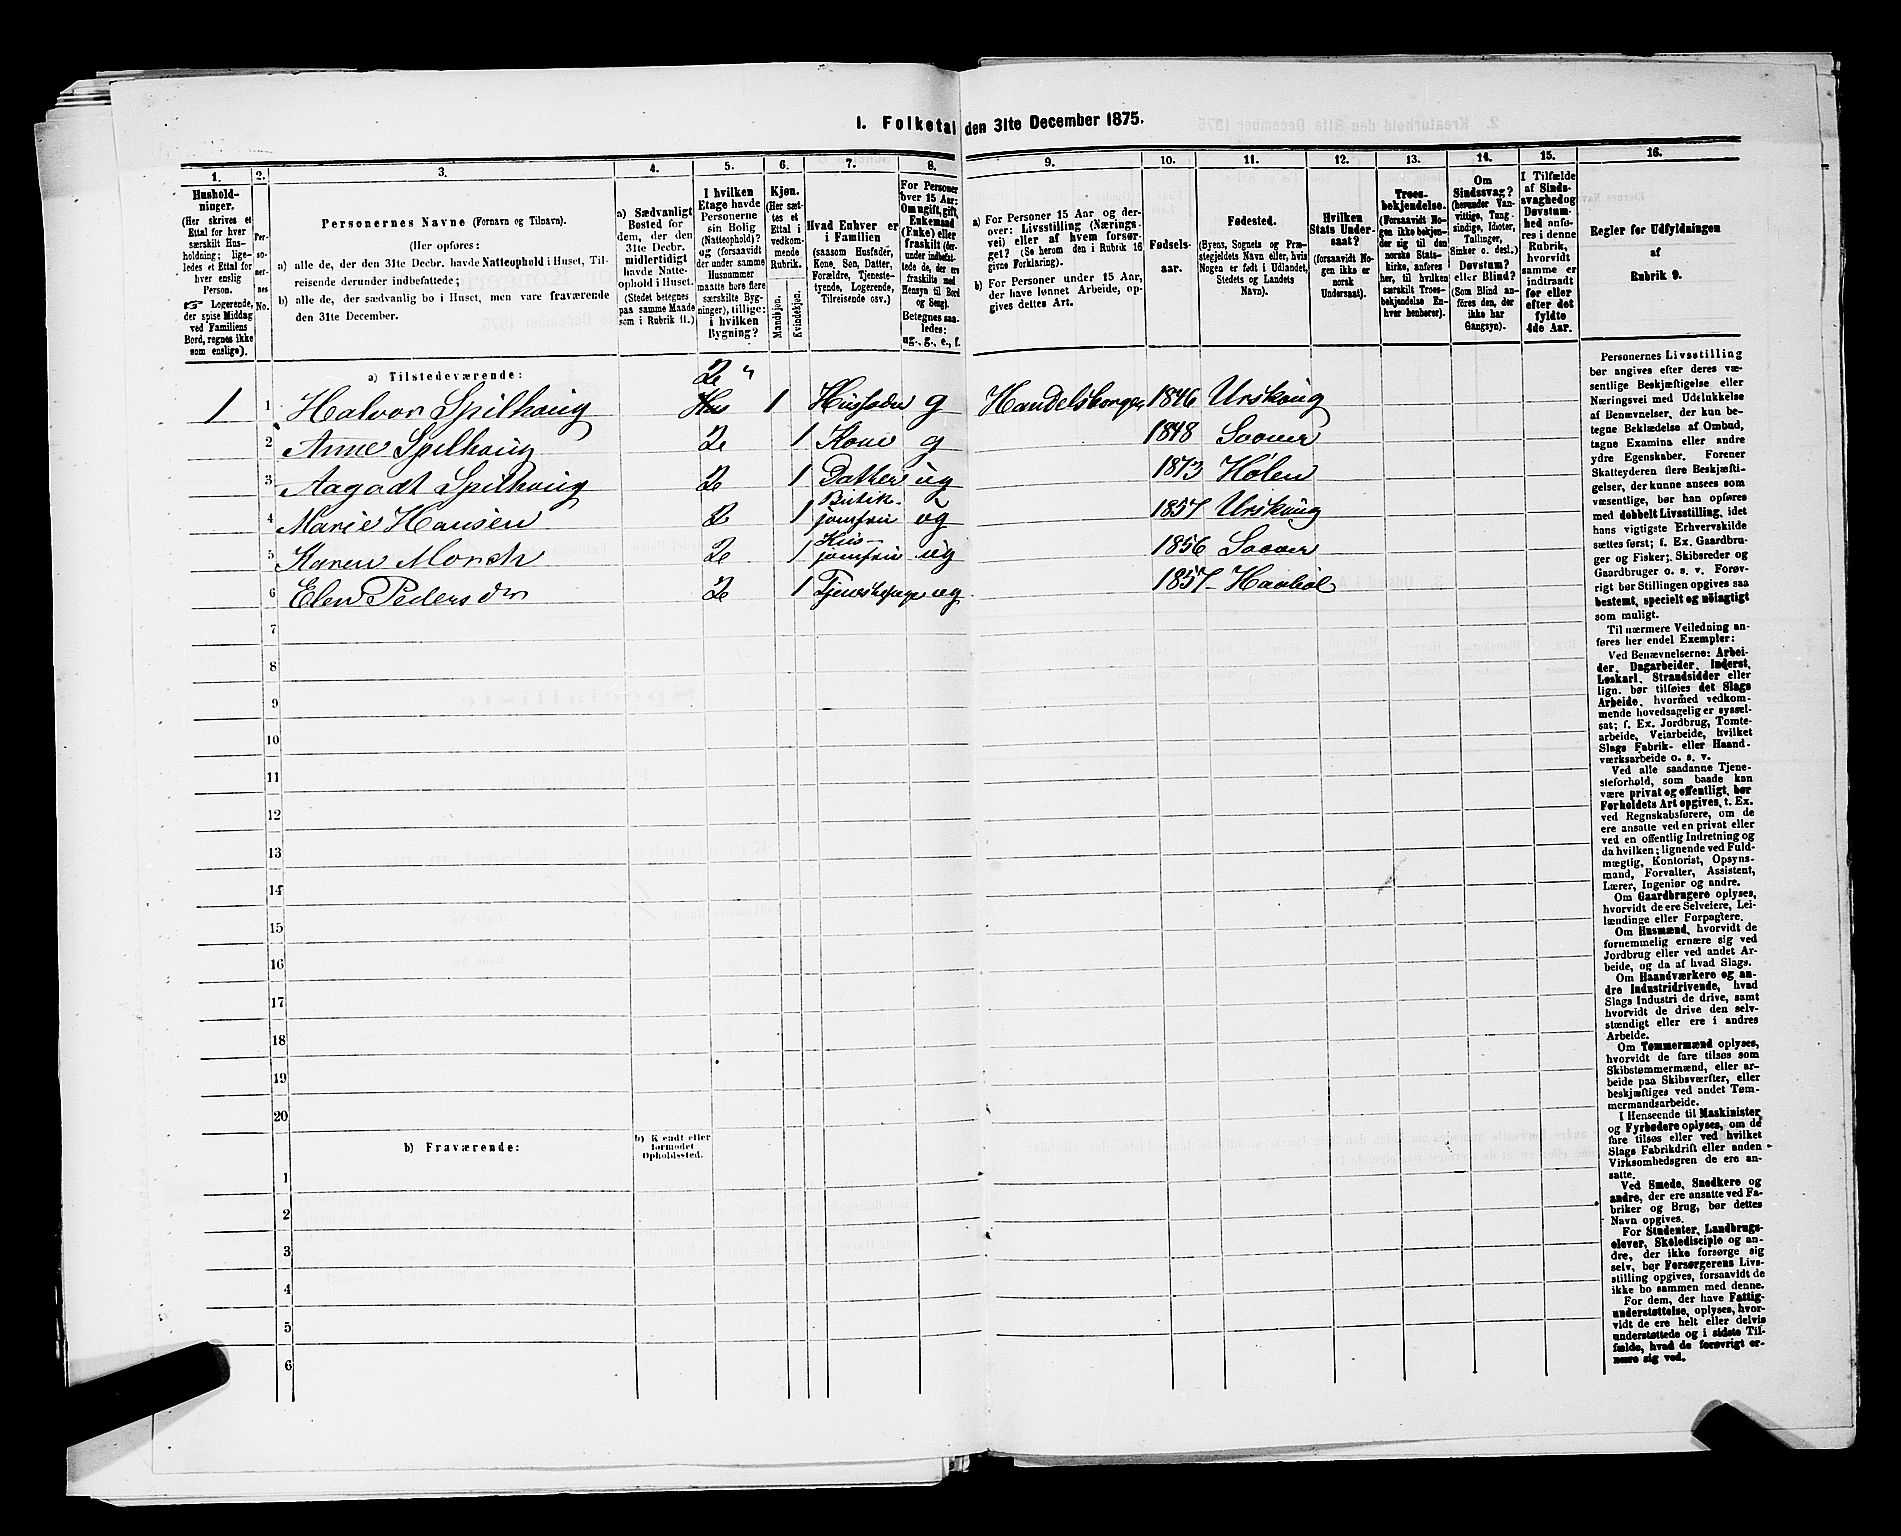 1. Folketal den 31te December 1875.
1. 2. 3. 4. 5. 6. 7. 8. 9. 10. 11. 12. 13. 14. 15. 16.
Hushold-
ninger.
(Her skrives et
Ettal for hver
særskilt Hus-
holdning; lige-
ledes et Ettal for
hver enslig
Person.
☞ Logerende,
der spise Middag
ved Familiens
Bord, regnes ikke
som enslige).
Per-
soner-
nes
No.
Personernes Navne (Fornavn og Tilnavn).
(Her opføres:
a) alle de, der den 31te Decbr. havde Natteophold i Huset, Til-
reisende derunder indbefattede;
b) alle de, der sædvanlig bo i Huset, men vare fraværende
den 31te December.
a) Sædvanligt
Bosted for
dem, der den
31te Decbr.
midlertidigt
havde Natte-
ophold i Huset.
(Stedet betegnes
paa samme Maade
som i Rubrik 11.)
I hvilken
Etage havde
Personerne
sin Bolig
(Natteophold)?
og (forsaavidt
der under samme
Husnummer
maatte høre flere
særskilte Byg-
ninger), tillige:
i hvilken
Bygning?
Kjøn.
(Her sæt-
tes et
Ettal i
vedkom-
mende
Rubrik.
Mandkjøn.
Kvindekjøn.
Hvad Enhver er
i Familien
(saasom Husfader,
Kone, Søn, Datter,
Forældre, Tjeneste-
tyende, Logerende,
Tilreisende osv.)
For Personer
over 15 Aar:
Om ugift, gift,
Enkemand
(Enke) eller
fraskilt (der-
under indbefat-
tede de, der ere
fraskilte med
Hensyn til Bord
og Seng).
Betegnes saa-
ledes:
ug., g., e., f.
a) For Personer 15 Aar og der-
over: Livsstilling (Nærings-
vei) eller af hvem forsør-
get? (Se herom den i Rubrik 16
givne Forklaring).
b) For Personer under 15 Aar,
der have lønnet Arbeide, op-
gives dettes Art.
Fødsels-
aar.
Fødested.
(Byens, Sognets og Præ-
stegjeldets Navn eller, hvis
Nogen er født i Udlandet,
Stedets og Landets
Navn).
Hvilken
Stats Under-
saat?
(forsaavidt No-
gen ikke er
norsk
Undersaat).
Troes-
bekjendelse.
(Forsaavidt No-
gen ikke bekjen-
der sig til den
norske Stats-
kirke, anføres
her, til hvilken
særskilt Troes-
bekjendelse En-
hver henhører).
Om
Sindssvag?
(herunder Van-
vittige, Tung-
sindige, Idioter,
Tullinger,
Sinker o. desl.)
Døvstum?
eller Blind?
(Som Blind an-
føres den, der
ikke har
Gangsyn).
I Tilfælde
af Sinds-
svaghed og
Døvstum-
hed anfø-
res i denne
Rubrik,
hvorvidt
samme er
indtraadt
før eller
efter det
fyldte
4de Aar.
Regler for Udfyldningen
af
Rubrik 9.
a) Tilstedeværende: 2 "
1 1 Halvor Spilhoug 1 Husfader g Handelsborger 1846 Urskoug
2 Anne Spilhoug 2 1 Kone g 1848 Soover
3 Aagodt Spilhoug 2 1 Datter ug 1873 Hölen
4 Marie Hansen 2 1 Butik-
jomfru ug 1857 Urskoug
5 Karen Morch 2 1 Hus-
jomfru ug 1856 Soover
6 Elen Pedersdr 2 1 ug 1857
7
8
9
10
11
12
13
14
15
16
17
18
19
20
b) Fraværende:
b) Kjendt eller
formodet
Opholdssted.
1
2
3
4
5
6
Personernes Livsstilling
bør angives efter deres væ-
sentlige Beskjæftigelse eller
Næringsvei med Udelukkelse
af Benævnelser, der kun be-
tegne Beklædelse af Ombud,
tagne Examina eller andre
ydre Egenskaber. Forener
Skatteyderen flere Beskjæfti-
gelser, der kunne ansees som
væsentlige, bør han opføres
med dobbelt Livsstilling, idet
hans vigtigste Erhvervskilde
sættes først; f. Ex. Gaardbru-
ger og Fisker; Skibsreder og
Gaardbruger o. s. v. Forøv-
rigt bør Stillingen opgives saa
bestemt, specielt og nöiagtigt
som muligt.
Til nærmere Veiledning an-
føres her endel Exempler:
Ved Benævnelserne: Arbei-
der, Dagarbeider, Inderst,
Løskarl, Strandsidder eller
lign. bør tilføies det Slags
Arbeide, hvormed vedkom-
mende hovedsagelig er syssel-
sat; f. Ex. Jordbrug, Tomte-
arbeide, Veiarbeide, hvilket
Slags Fabrik- eller Haand-
værksarbeide o. s. v.
Ved alle saadanne Tjene-
steforhold, som baade kan
være privat og offentligt, bør
Forholdets Art opgives, t. Ex.
ved Regnskabsførere, om de
ere ansatte ved en privat eller
ved en offentlig Indretning og
da hvilken; lignende ved Fuld-
mægtig, Kontorist, Opsyns-
mand, Forvalter, Assistent,
Lærer, Ingeniør og andre.
Om Gaardbrugere oplyses,
hvorvidt de ere Selveiere, Lei-
lændinge eller Forpagtere.
Om Husmænd, hvorvidt de
fornemmelig ernære sig ved
Jordbrug eller ved andet Ar-
beide, og da af hvad Slags.
Om Haandværkere og an-
dre Industridrivende, hvad
Slags Industri de drive, samt
hvorvidt de drive den selv-
stændigt eller ere i andres
Arbeide.
Om Tømmermænd oplyses,
hvorvidt de fare tilsøs som
Skibstømmermænd, eller ar-
beide paa Skibsværfter, eller
beskjæftiges ved andet Tøm-
mermandsarbeide.
I Henseende til Maskinister
og Fyrbødere oplyses, om de
fare tilsøs eller ved hvilket
Slags Fabrikdrift eller anden
Virksomhedsgren de ere an-
satte.
Ved Smede, Snedkere og
andre, der ere ansatte ved Fa-
briker og Brug, bør dettes
Navn opgives.
For Studenter, Landbrugs-
elever, Skoledisciple og an-
dre, der ikke forsørge sig
selv, bør Forsørgerens Livs-
stilling opgives, forsaavidt de
ikke bo sammen med denne.
For dem, der have Fattig-
understøttelse, oplyses, hvor-
vidt de ere helt eller delvis
understøttede og i sidste Til-
fælde, hvad de forøvrigt er-
nære sig ved.